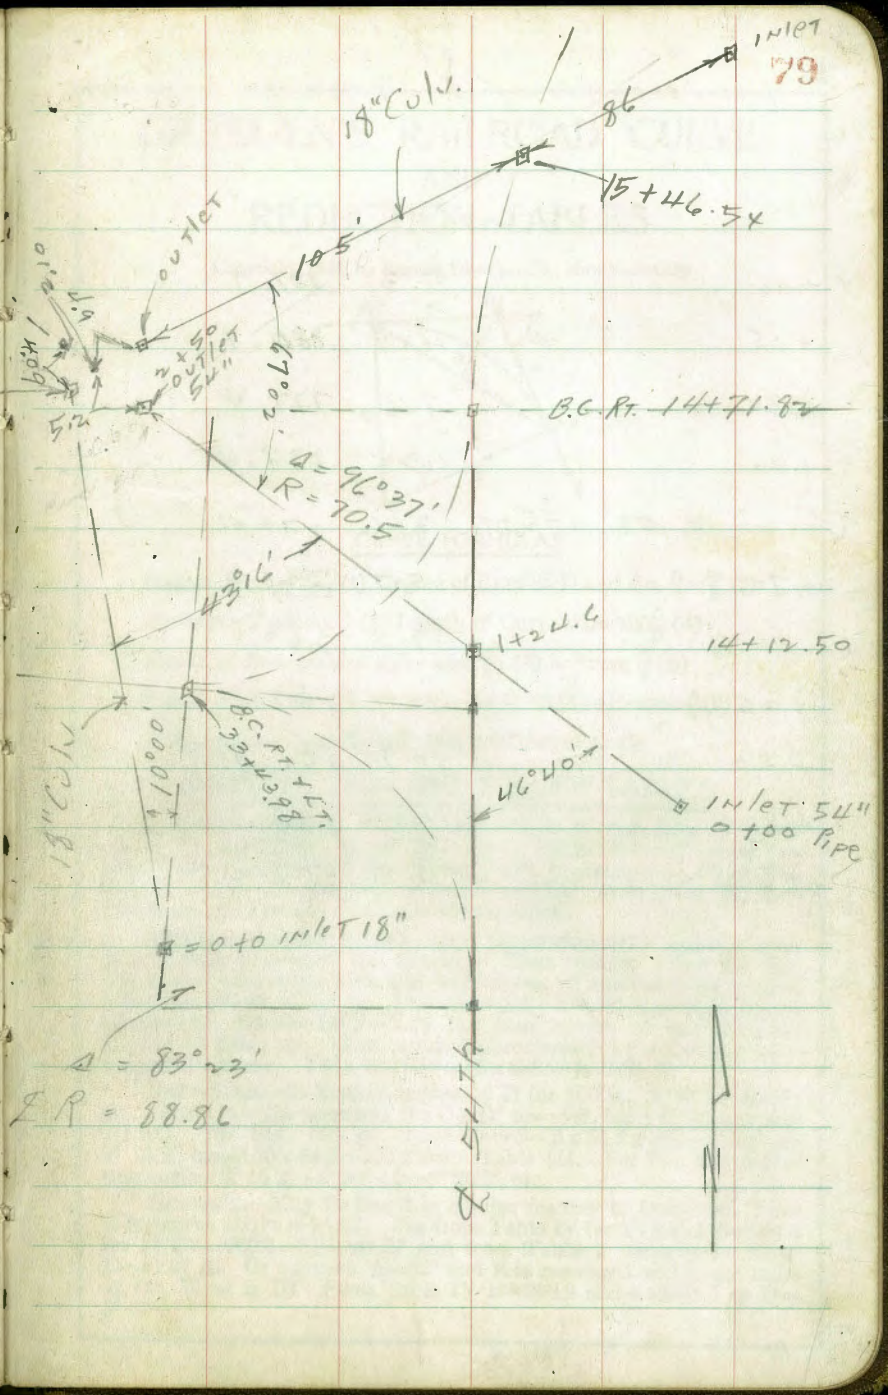 INLET
79
86
18" Culv.
15+46.54
OUTLET
105'
2.10
4.9
1.409
5.2
2+50
OUTLET
54"
67°02'
B.C. RT. 14+71.82
Δ = 96°37'
R = 70.5
43°16'
1+24.6
14+12.50
B.C. RT. + LT.
33+43.98
18" Culv
46°40'
INLET 54"
0+00 Pipe
= 0+0 INLET 18"
Δ = 83°23'
℄ R = 88.86
℄ 54Th
N